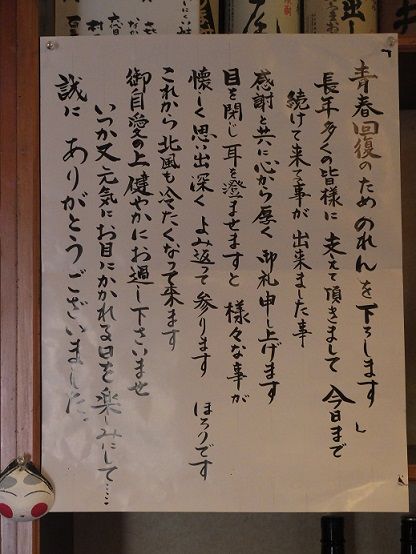 「青春回復のためのれんを下ろします」
長年多くの皆様に支えて頂きまして今日まで
続けて来て事が出来ました事
感謝と共に心から厚く御礼申し上げます
目を閉じ耳を澄ませますと様々な事が
懐しく思い出深くよみ返って参ります ほろりです
これから北風も冷たくなって来ます
御自愛の上健やかにお過し下さいませ
いつか又元気にお目にかかれる日を楽しみにして……
誠にありがとうございました。